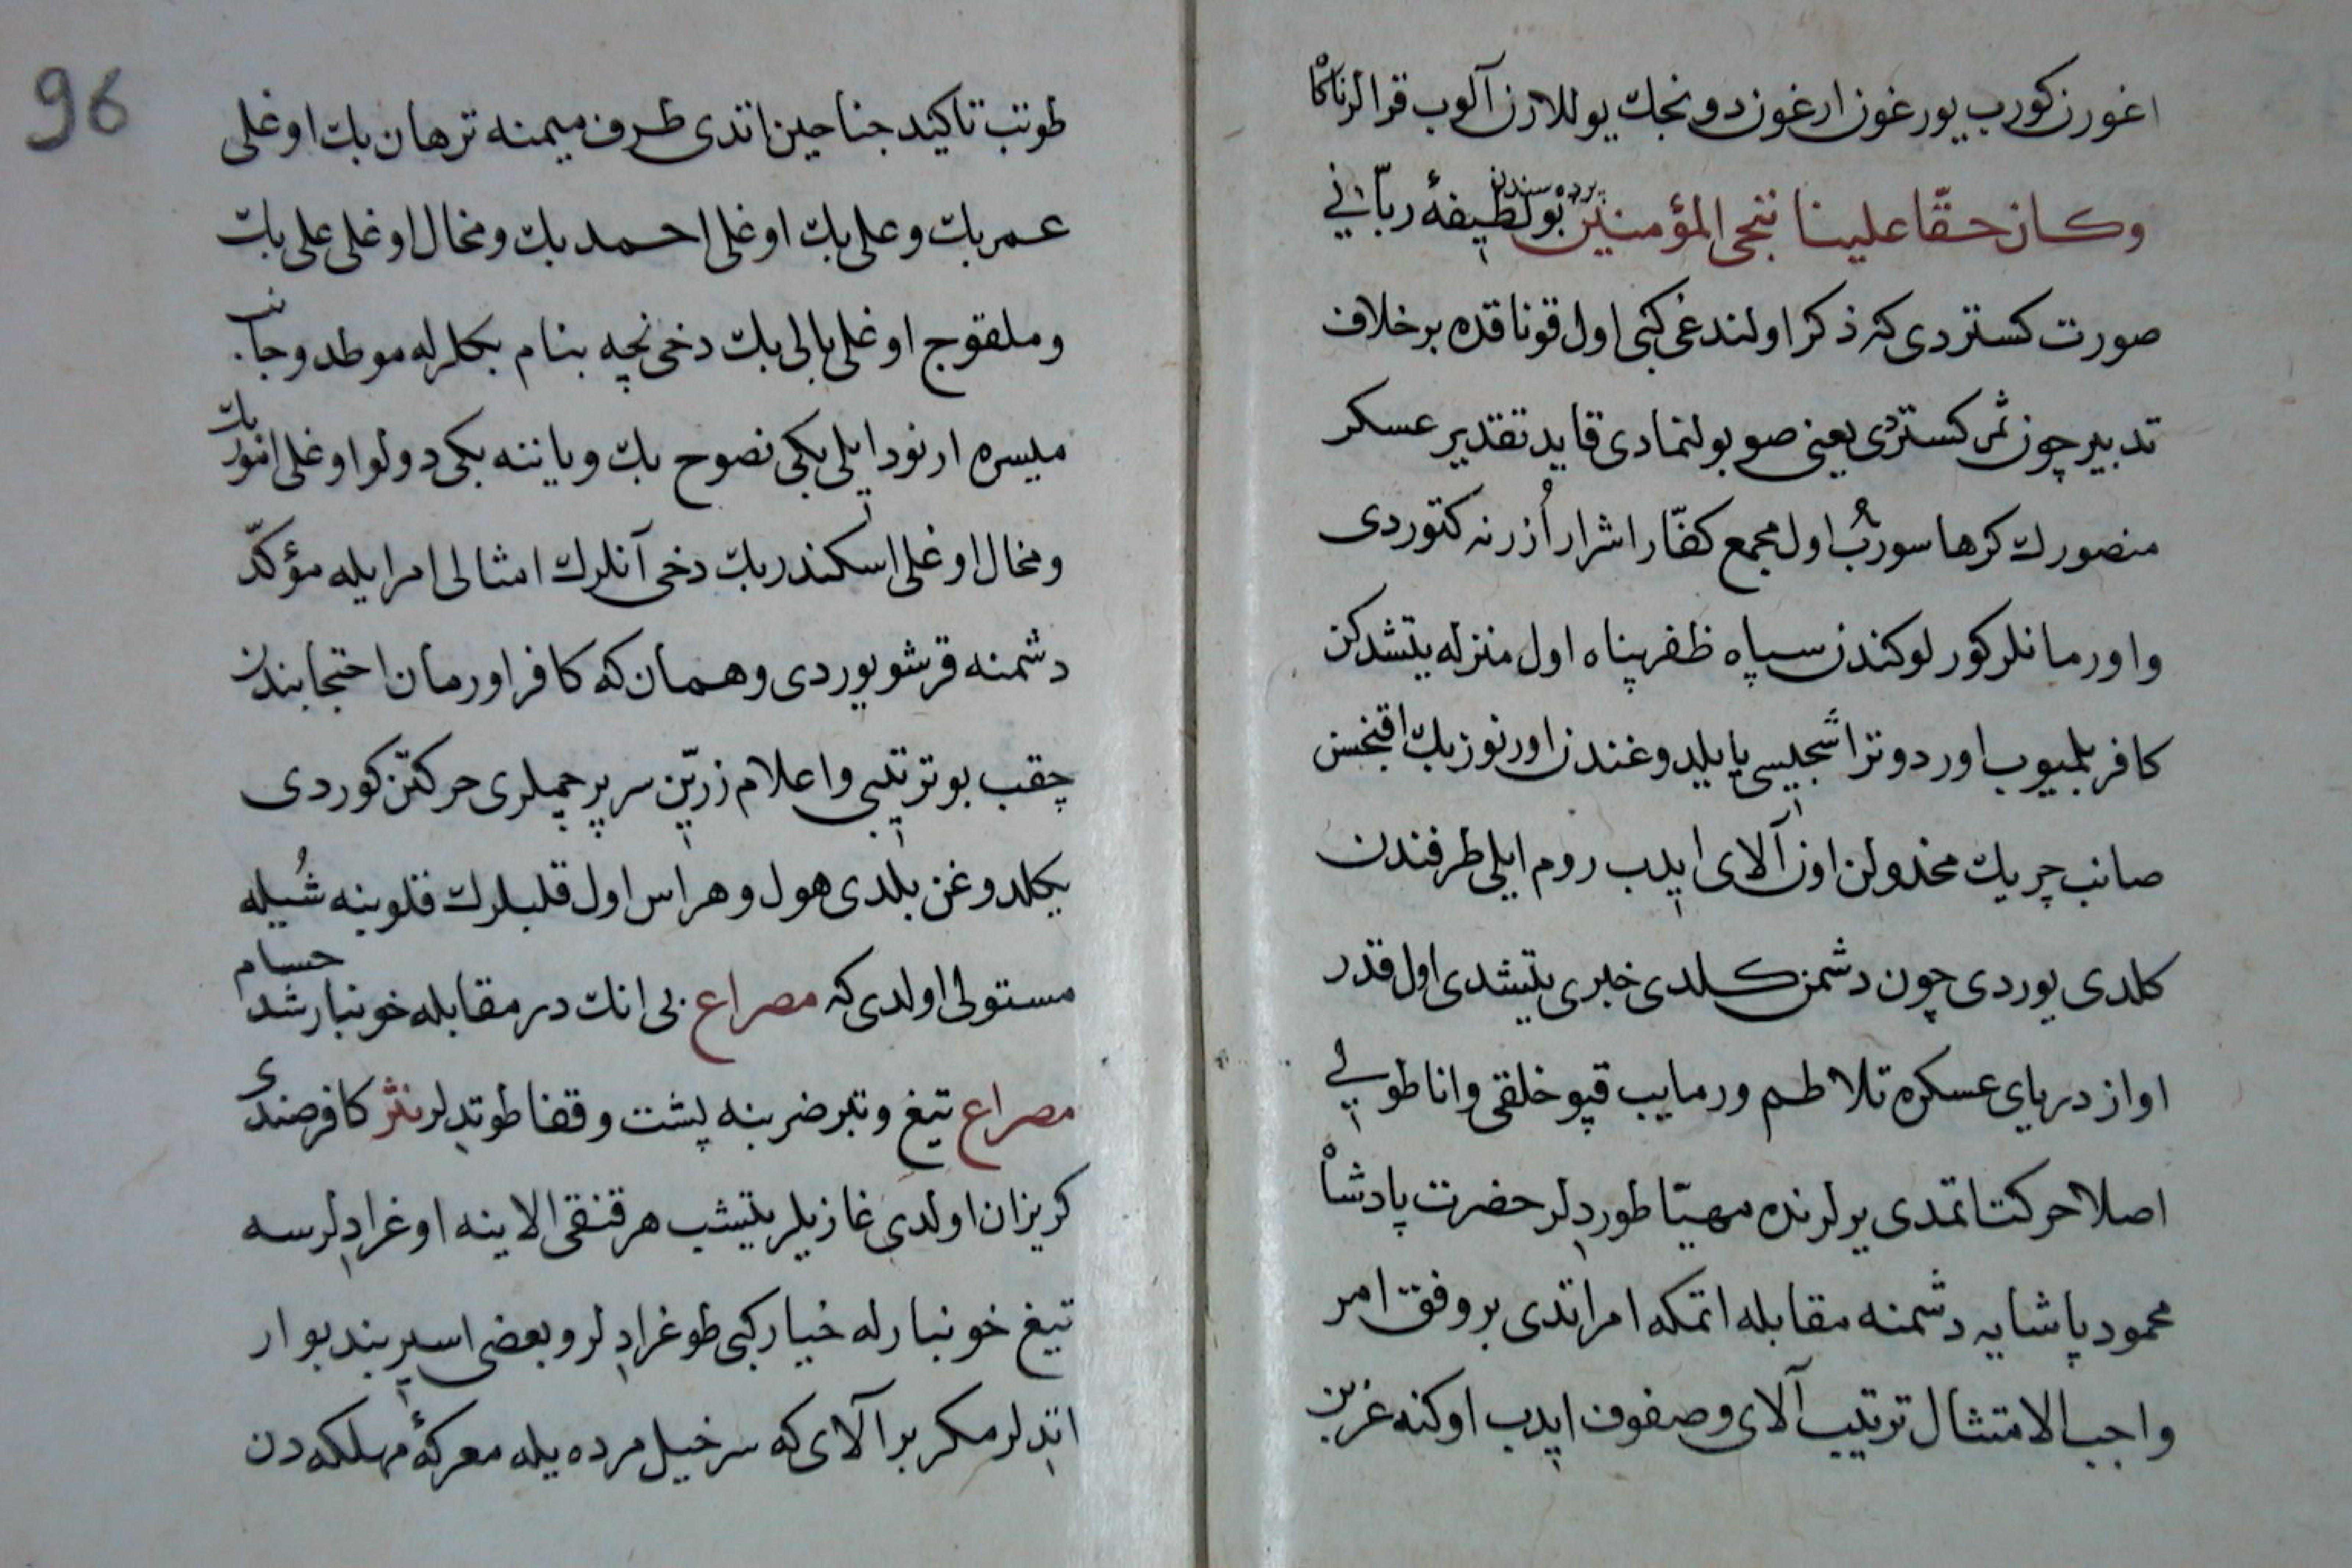 اغورن کورب یورغون ارغون دونجك یوللارن آلوب قرالرناکاه
وکان حقّا علینا ننجی المؤمنین پرده سندن بولطیفهٔ ربّانی
صورت کستردی که ذکر اولندغی کبی اول قوناقده برخلاف
تدبیر چون ثمر کستردی یعنی صو بولنمادی قاید تقدیر عسکر
منصورك کرها سورب اول مجمع کفّار اشرار اُزرنه کتوردی
واورمانلر کورلوکندن سپاه ظفرپناه اول منزله یتشدکن
کافر بلمیوب اوردوتراشجیسی یایلدوغندن اورنوزبك اقنجسن
صانب چریك مخذولن اون آلای ایدب روم ایلی طرفندن
کلدی یوردی چون دشمن کلدی خبری یتیشدی اول قدر
اواز دریای عسکره تلاطم ورمایب قپو خلقی واناطولی
اصلا حرکت اتمدی یرلرنده مهیّا طوردلر حضرت پادشاه
محمود پاشایه دشمنه مقابله اتمکه امر اتدی بروفق امر
واجب الامتثال ترتیب آلای وصفوف ایدب اوکنه عزبن
96
طوتب تاکید جناحین اتدی طرف میمنه ترهان بك اوغلی
عمربك وعلی بك اوغلی احمد بك ومخال اوغلی علی بك
وملقوج اوغلی بالی بك دخی نچه بنام بکلرله موطد وجانب
میسره ارنود ایلی بکی نصوح بك ویاننه بکی دولو اوغلی انور بك
ومخال اوغلی اسکندر بك دخی آنلرك امثالی امرا یله مؤکدّ
دشمنه قرشو یوردی وهمان که کافر اورمان احتجابندن
چقب بو ترتیبی واعلام زرّین سر پرچملری حرکتن کوردی
یکلدوغن بلدی هول وهراس اول قلبلرك قلوبنه شُیله
مستولی اولدی که مصراع بی انك در مقابله خونبار شد حسام
مصراع تیغ وتبر ضربنه پشت وقفا طوتدلر نثر کافر صندی
کریزان اولدی غازیلر یتیشب هر قنقی الاینه اوغرادلرسه
تیغ خونبارله خیار کبی طوغرادلر وبعضی اسیر بند بوار
اتدلر مکر بر آلای که سرخیل مرده یله معرکهٔ مهلکه دن